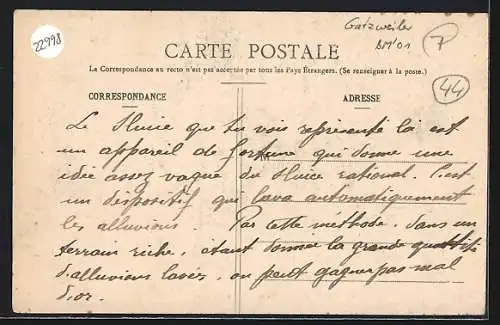 22998
Gatzweiler
BM'01
7
44
CARTE POSTALE
La Correspondance au recto n'est pas acceptée par tous les Pays Étrangers. (Se renseigner à la poste.)
CORRESPONDANCE
ADRESSE
Le Sluice que tu vois représenté là est
un appareil de fortune qui donne une
idée assez vague du Sluice rational. C'est
un dispositif qui lava automatiquement
les alluvions. Par cette méthode, dans un
terrain riche, étant donnée la grande quantité
d'alluvions lavés, on peut gagner pas mal
d'or.